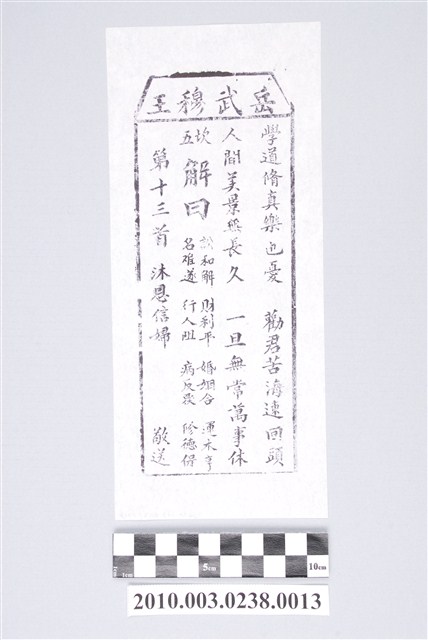 岳武穆王
學道脩真樂也憂 勸君苦海速回頭
人間美景無長久 一旦無常萬事休
坎五
解曰
訟和解 財利平 婚姻合 運未亨
名难遂 行人阻 病反覆 修德保
第十三首 沐恩信婦 敬送
1cm 5cm 10cm
2010.003.0238.0013